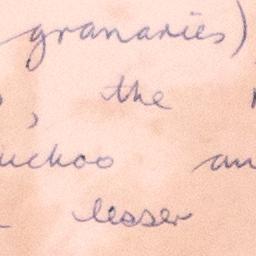 granaries)
, the
uckoo an
lesser